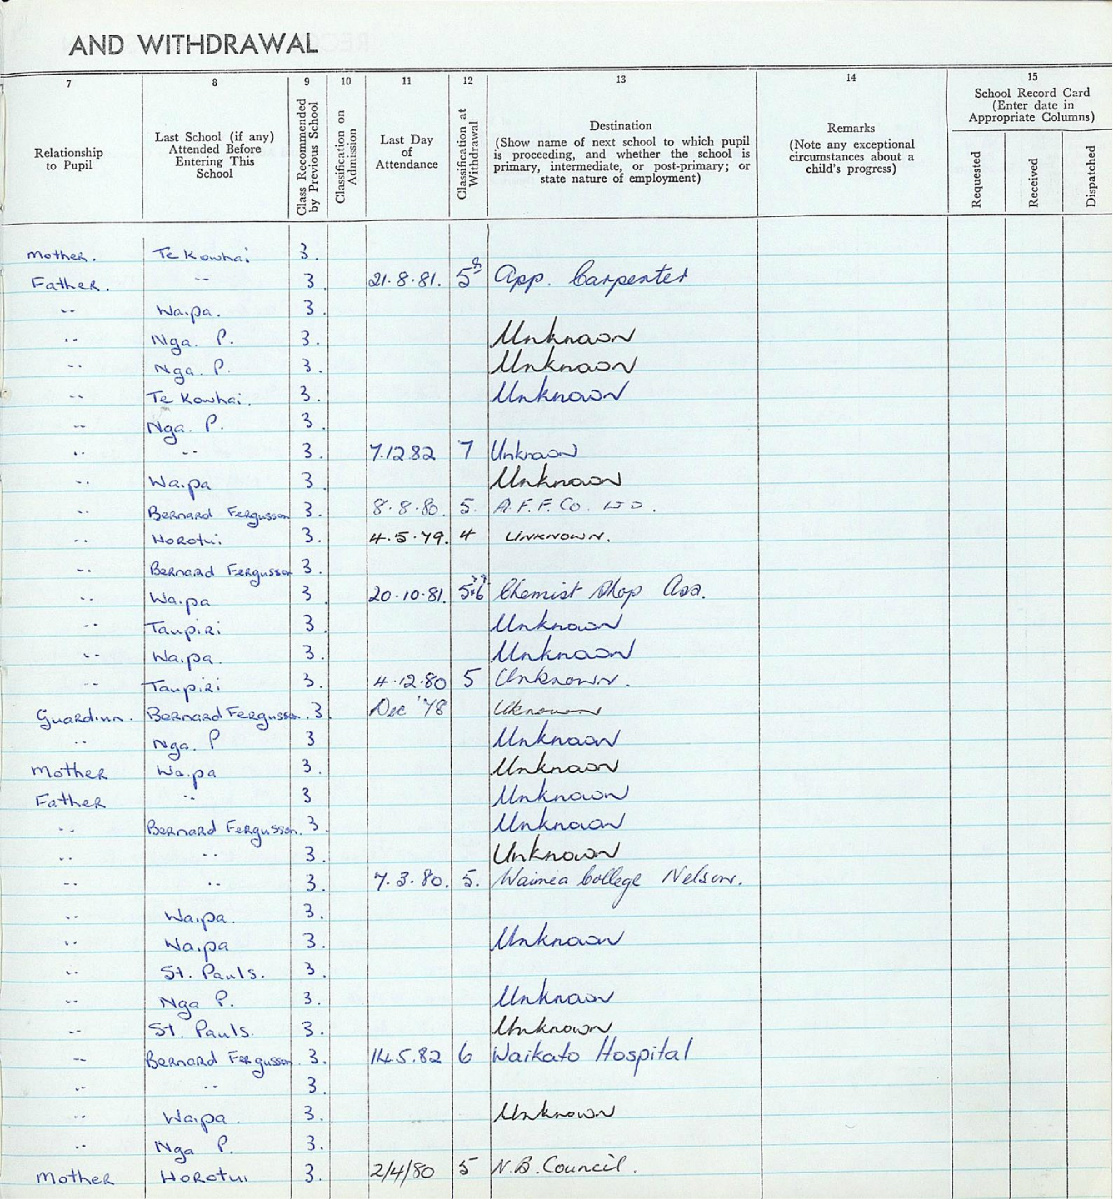 AND WITHDRAWAL
7 8 9 10 11 12 13 14 15
Relationship to Pupil
Last School (if any) Attended Before Entering This School
Class Recommended by Previous School
Classification on Admission
Last Day of Attendance
Classification at Withdrawal
Destination
(Show name of next school to which pupil is proceeding, and whether the school is primary, intermediate, or post-primary; or state nature of employment)
Remarks
(Note any exceptional circumstances about a child's progress)
School Record Card
(Enter date in Appropriate Columns)
Requested
Received
Dispatched
Mother. Te Kowhai 3.
Father. -- 3. 21.8.81. 5⁸ App. Carpenter
-- Waipa. 3.
-- Nga. P. 3. Unknown
-- Nga. P. 3. Unknown
-- Te Kowhai. 3. Unknown
-- Nga. P. 3.
-- -- 3. 7.12.82 7 Unknown
-- Waipa 3. Unknown
-- Bernard Fergusson 3. 8.8.80. 5. A.F.F. Co. LTD.
-- Horotiu 3. 4.5.79. 4 UNKNOWN.
-- Bernard Fergusson 3.
-- Waipa 3 20.10.81. 5+6 Chemist Shop Ass.
-- Taupiri 3. Unknown
-- Waipa. 3. Unknown
-- Taupiri 3. 4.12.80 5 Unknown.
Guardian. Bernard Fergusson. 3. Dec '78 Uknown
-- Nga. P 3 Unknown
Mother Waipa 3. Unknown
Father -- 3 Unknown
-- Bernard Fergusson. 3. Unknown
-- -- 3. Unknown
-- -- 3. 7.3.80. 5. Waimea College Nelson.
Waipa. 3.
-- Waipa 3. Unknown
-- St. Pauls. 3.
-- Nga P. 3. Unknown
-- St. Pauls. 3. Unknown
-- Bernard Fergusson. 3. 14.5.82 6 Waikato Hospital
-- -- 3.
-- Waipa. 3. Unknown
-- Nga P. 3.
Mother Horotiu 3. 2/4/80 5 N.B. Council.